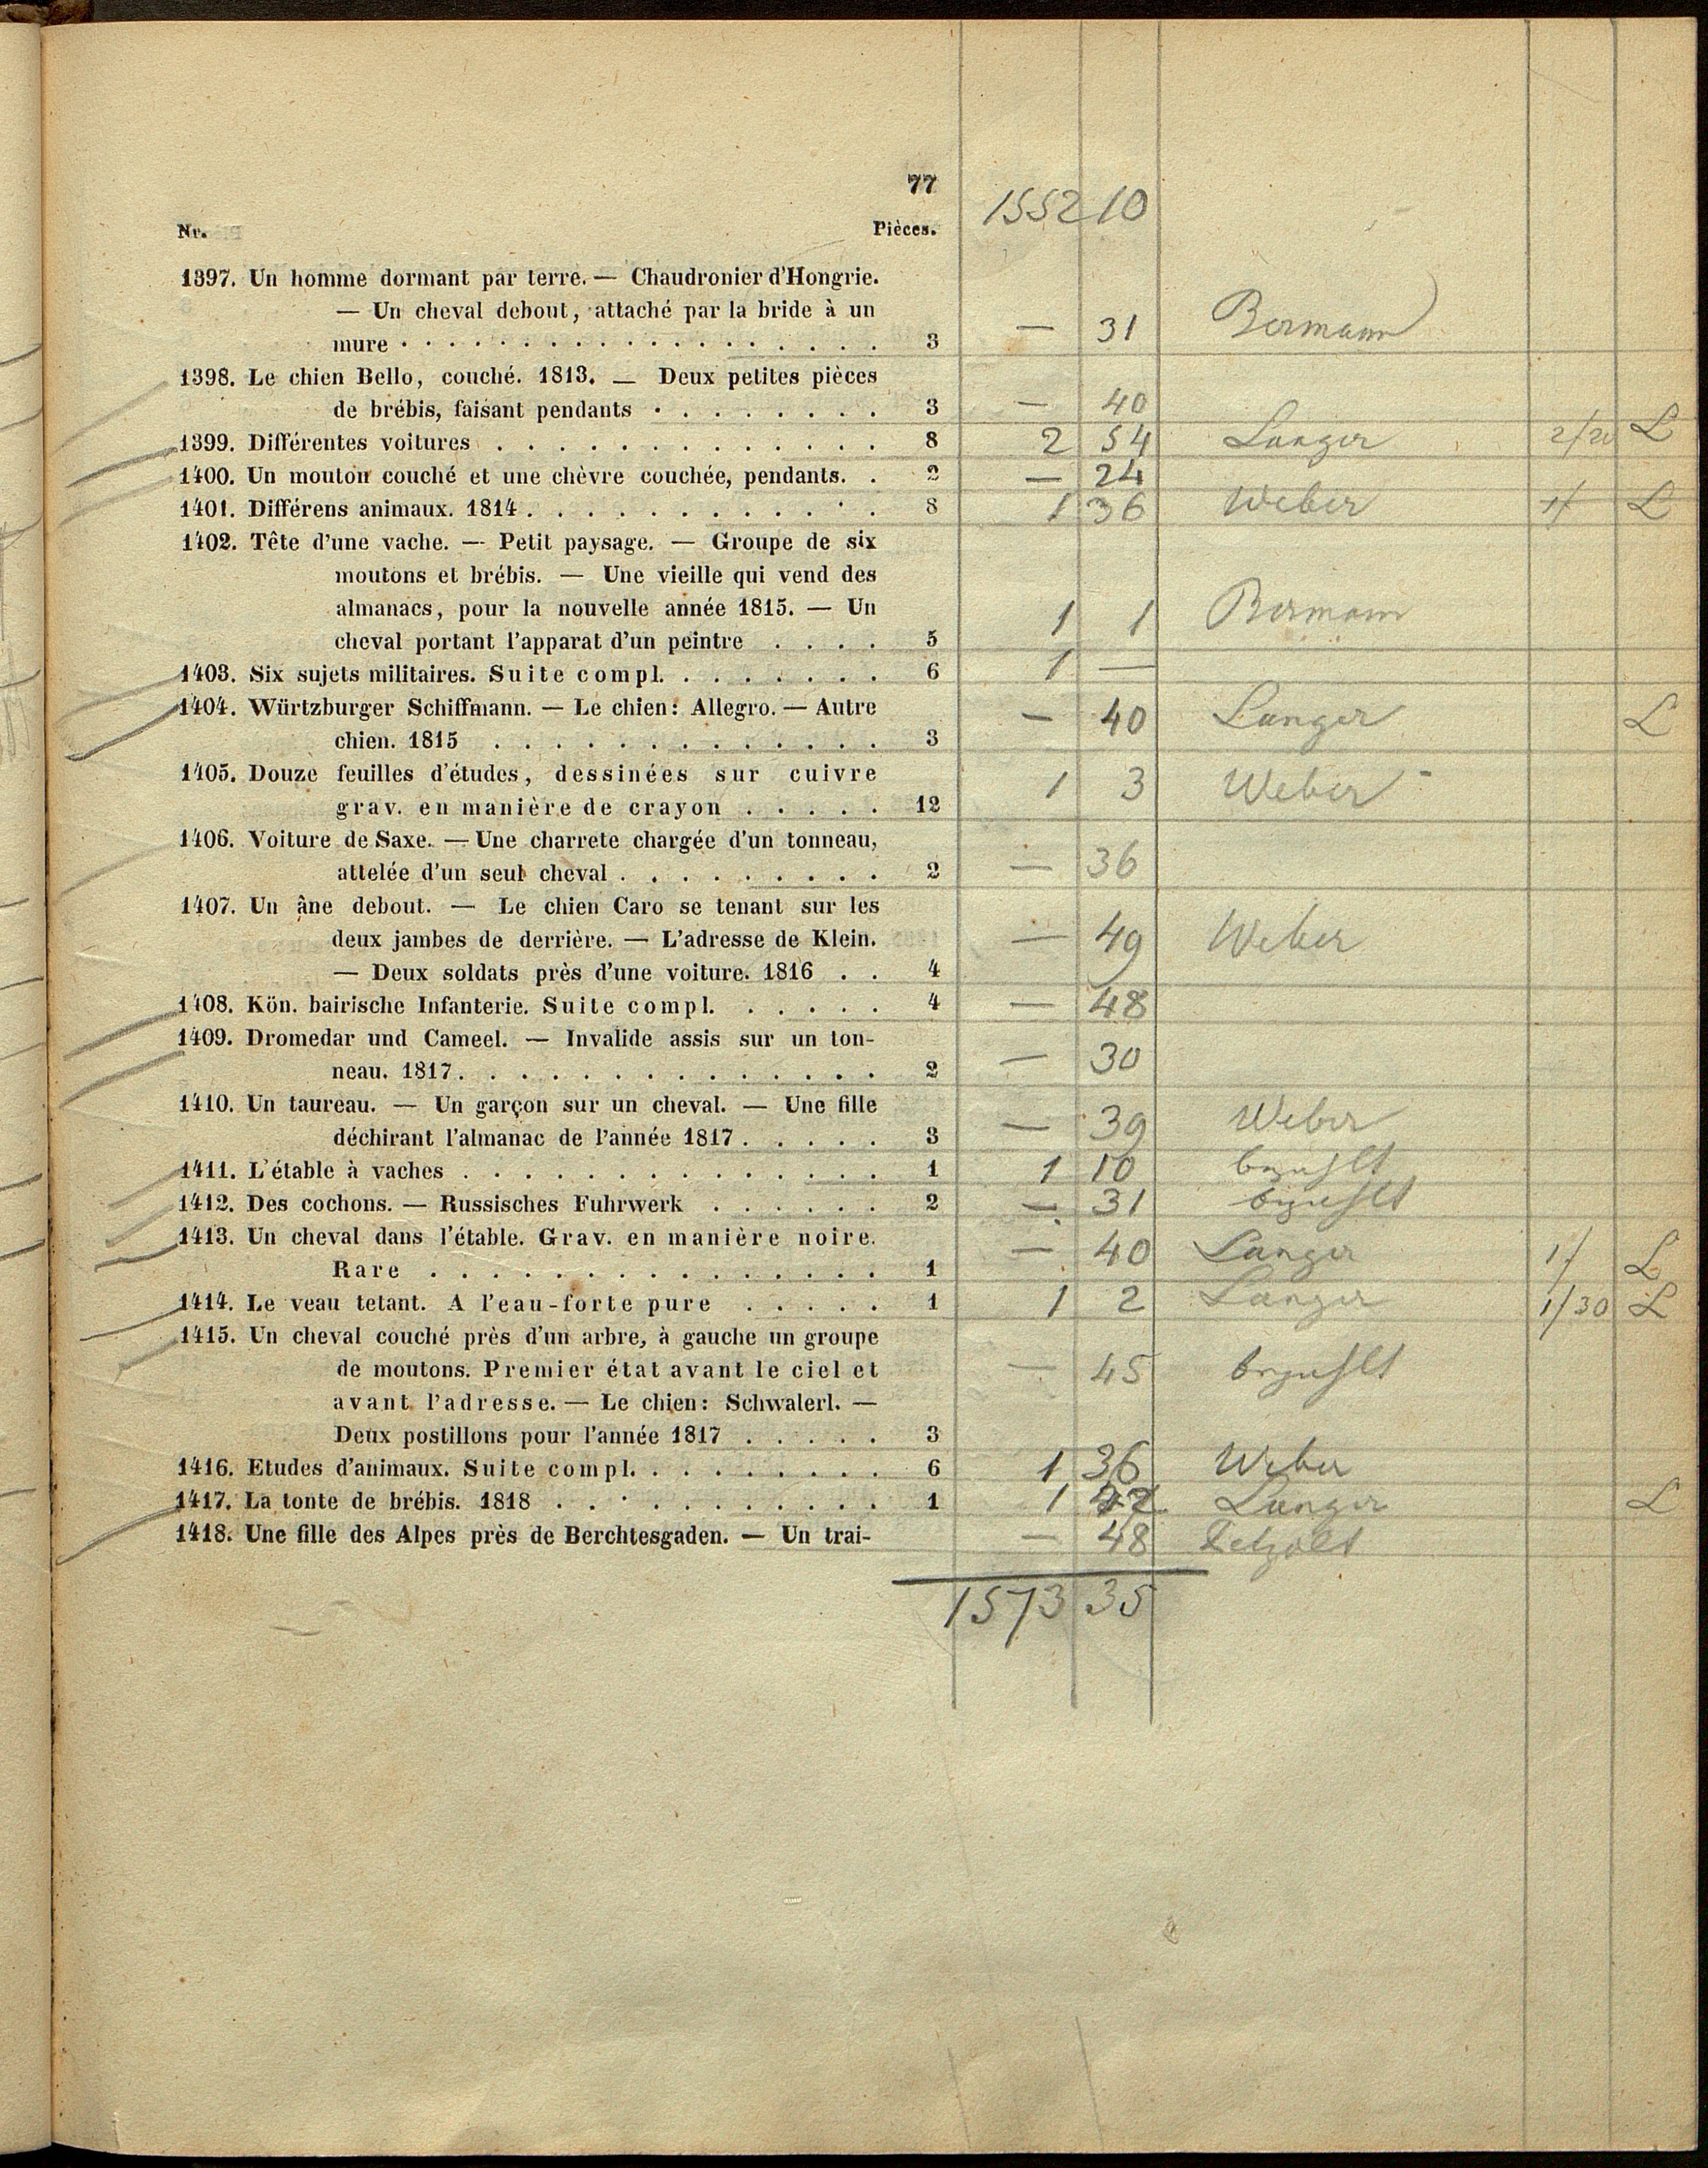 77
1552 10
Nr. Pièces.
1397. Un homme dormant par terre. — Chaudronier d'Hongrie.
— Un cheval debout, attaché par la bride à un
mure . . . . . . . . . . . . . . . . . . 3 — 31 Bermann
1398. Le chien Bello, couché. 1813. — Deux petites pièces
de brébis, faisant pendants . . . . . . . . 3 — 40
1399. Différentes voitures . . . . . . . . . . . . . 8 2 54 Langer 2/20 L
1400. Un mouton couché et une chèvre couchée, pendants. . 2 — 24
1401. Différens animaux. 1814 . . . . . . . . . . . . 8 1 36 Weber 1/ L
1402. Tête d'une vache. — Petit paysage. — Groupe de six
moutons et brébis. — Une vieille qui vend des
almanacs, pour la nouvelle année 1815. — Un
cheval portant l'apparat d'un peintre . . . . 5 1 1 Bermann
1403. Six sujets militaires. Suite compl. . . . . . . . 6 1 —
1404. Würtzburger Schiffmann. — Le chien: Allegro. — Autre
chien. 1815 . . . . . . . . . . . . . 3 — 40 Langer L
1405. Douze feuilles d'études, dessinées sur cuivre
grav. en manière de crayon . . . . . 12 1 3 Weber
1406. Voiture de Saxe. — Une charrete chargée d'un tonneau,
attelée d'un seul cheval . . . . . . . . . 2 — 36
1407. Un âne debout. — Le chien Caro se tenant sur les
deux jambes de derrière. — L'adresse de Klein.
— Deux soldats près d'une voiture. 1816 . . 4 — 49 Weber
1408. Kön. bairische Infanterie. Suite compl. . . . . . 4 — 48
1409. Dromedar und Cameel. — Invalide assis sur un ton-
neau. 1817. . . . . . . . . . . . . . . 2 — 30
1410. Un taureau. — Un garçon sur un cheval. — Une fille
déchirant l'almanac de l'année 1817. . . . . 3 — 39 Weber
1411. L'étable à vaches . . . . . . . . . . . . . . 1 1 10 bezahlt
1412. Des cochons. — Russisches Fuhrwerk . . . . . . 2 — 31 bezahlt
1413. Un cheval dans l'étable. Grav. en manière noire.
Rare . . . . . . . . . . . . . . . 1 — 40 Langer 1/ L
1414. Le veau tetant. A l'eau-forte pure . . . . . 1 1 2 Langer 1/30 L
1415. Un cheval couché près d'un arbre, à gauche un groupe
de moutons. Premier état avant le ciel et
avant l'adresse. — Le chien: Schwalerl. —
Deux postillons pour l'année 1817 . . . . . 3 — 45 bezahlt
1416. Etudes d'animaux. Suite compl. . . . . . . . . 6 1 36 Weber
1417. La tonte de brébis. 1818 . . . . . . . . . . . 1 1 Langer L
1418. Une fille des Alpes près de Berchtesgaden. — Un trai- — 48
1573 35